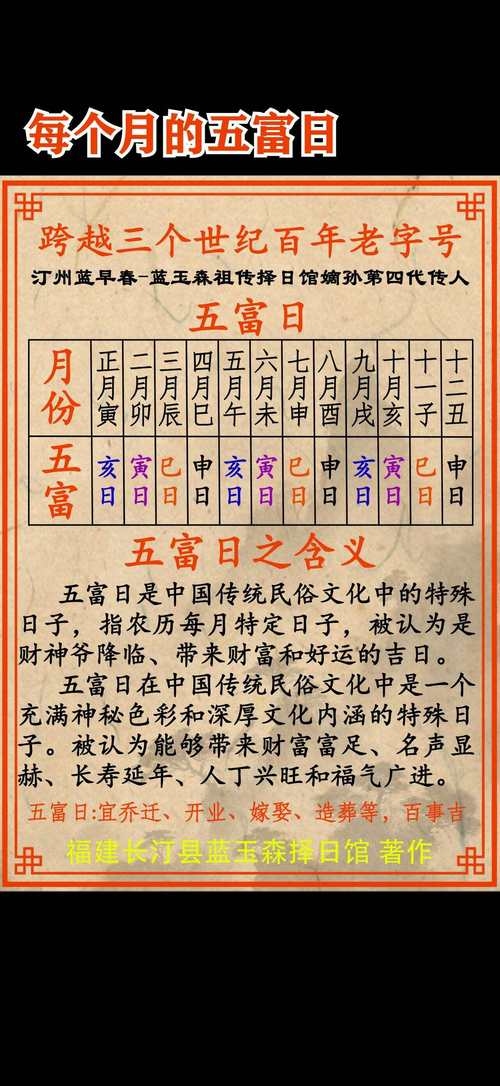 每个月的五富日
跨越三个世纪百年老字号
汀州蓝早春-蓝玉森祖传择日馆嫡孙第四代传人
五富日
月份 正月寅 二月卯 三月辰 四月巳 五月午 六月未 七月申 八月酉 九月戌 十月亥 十一子 十二丑
五富 亥日 寅日 巳日 申日 亥日 寅日 巳日 申日 亥日 寅日 巳日 申日
五富日之含义
五富日是中国传统民俗文化中的特殊
日子，指农历每月特定日子，被认为是
财神爷降临、带来财富和好运的吉日。
五富日在中国传统民俗文化中是一个
充满神秘色彩和深厚文化内涵的特殊日
子。被认为能够带来财富富足、名声显
赫、长寿延年、人丁兴旺和福气广进。
五富日:宜乔迁、开业、嫁娶、造葬等，百事吉
福建长汀县蓝玉森择日馆 著作